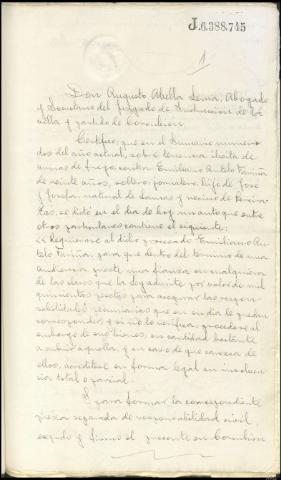 J.6.388.745
1
Don Augusto Abella Lema, Abogado
y Secretario del Juzgado de Instrucción de la
villa y partido de Corcubión.
Certifico: que en el Sumario número
dos del año actual, sobre tenencia ilícita de
armas de fuego, contra Emiliano Antelo Fariña
de veinte años, soltero, jornalero, hijo de José
y Josefa, natural de y vecino de
se dictó en el dia de hoy un auto que entre
otros particulares contiene el siguiente:
"Requierase al dicho procesado Emiliano An-
telo Fariña, para que dentro del termino de una
audiencia preste una fianza en cualquiera
de las clases que la ley admite por valor de mil
quinientas pesetas para asegurar las respon-
sabilidades pecuniarias que en su dia le puedan
corresponder; y si no lo verifica, procedase al
embargo de sus bienes, en cantidad bastante
a cubrir aquella, y en caso de que carezca de
ellos, acreditese en forma legal su insolven-
cia total o parcial.
Y para formar la correspondiente
pieza separada de responsabilidad civil,
expido y firmo el presente en Corcubión